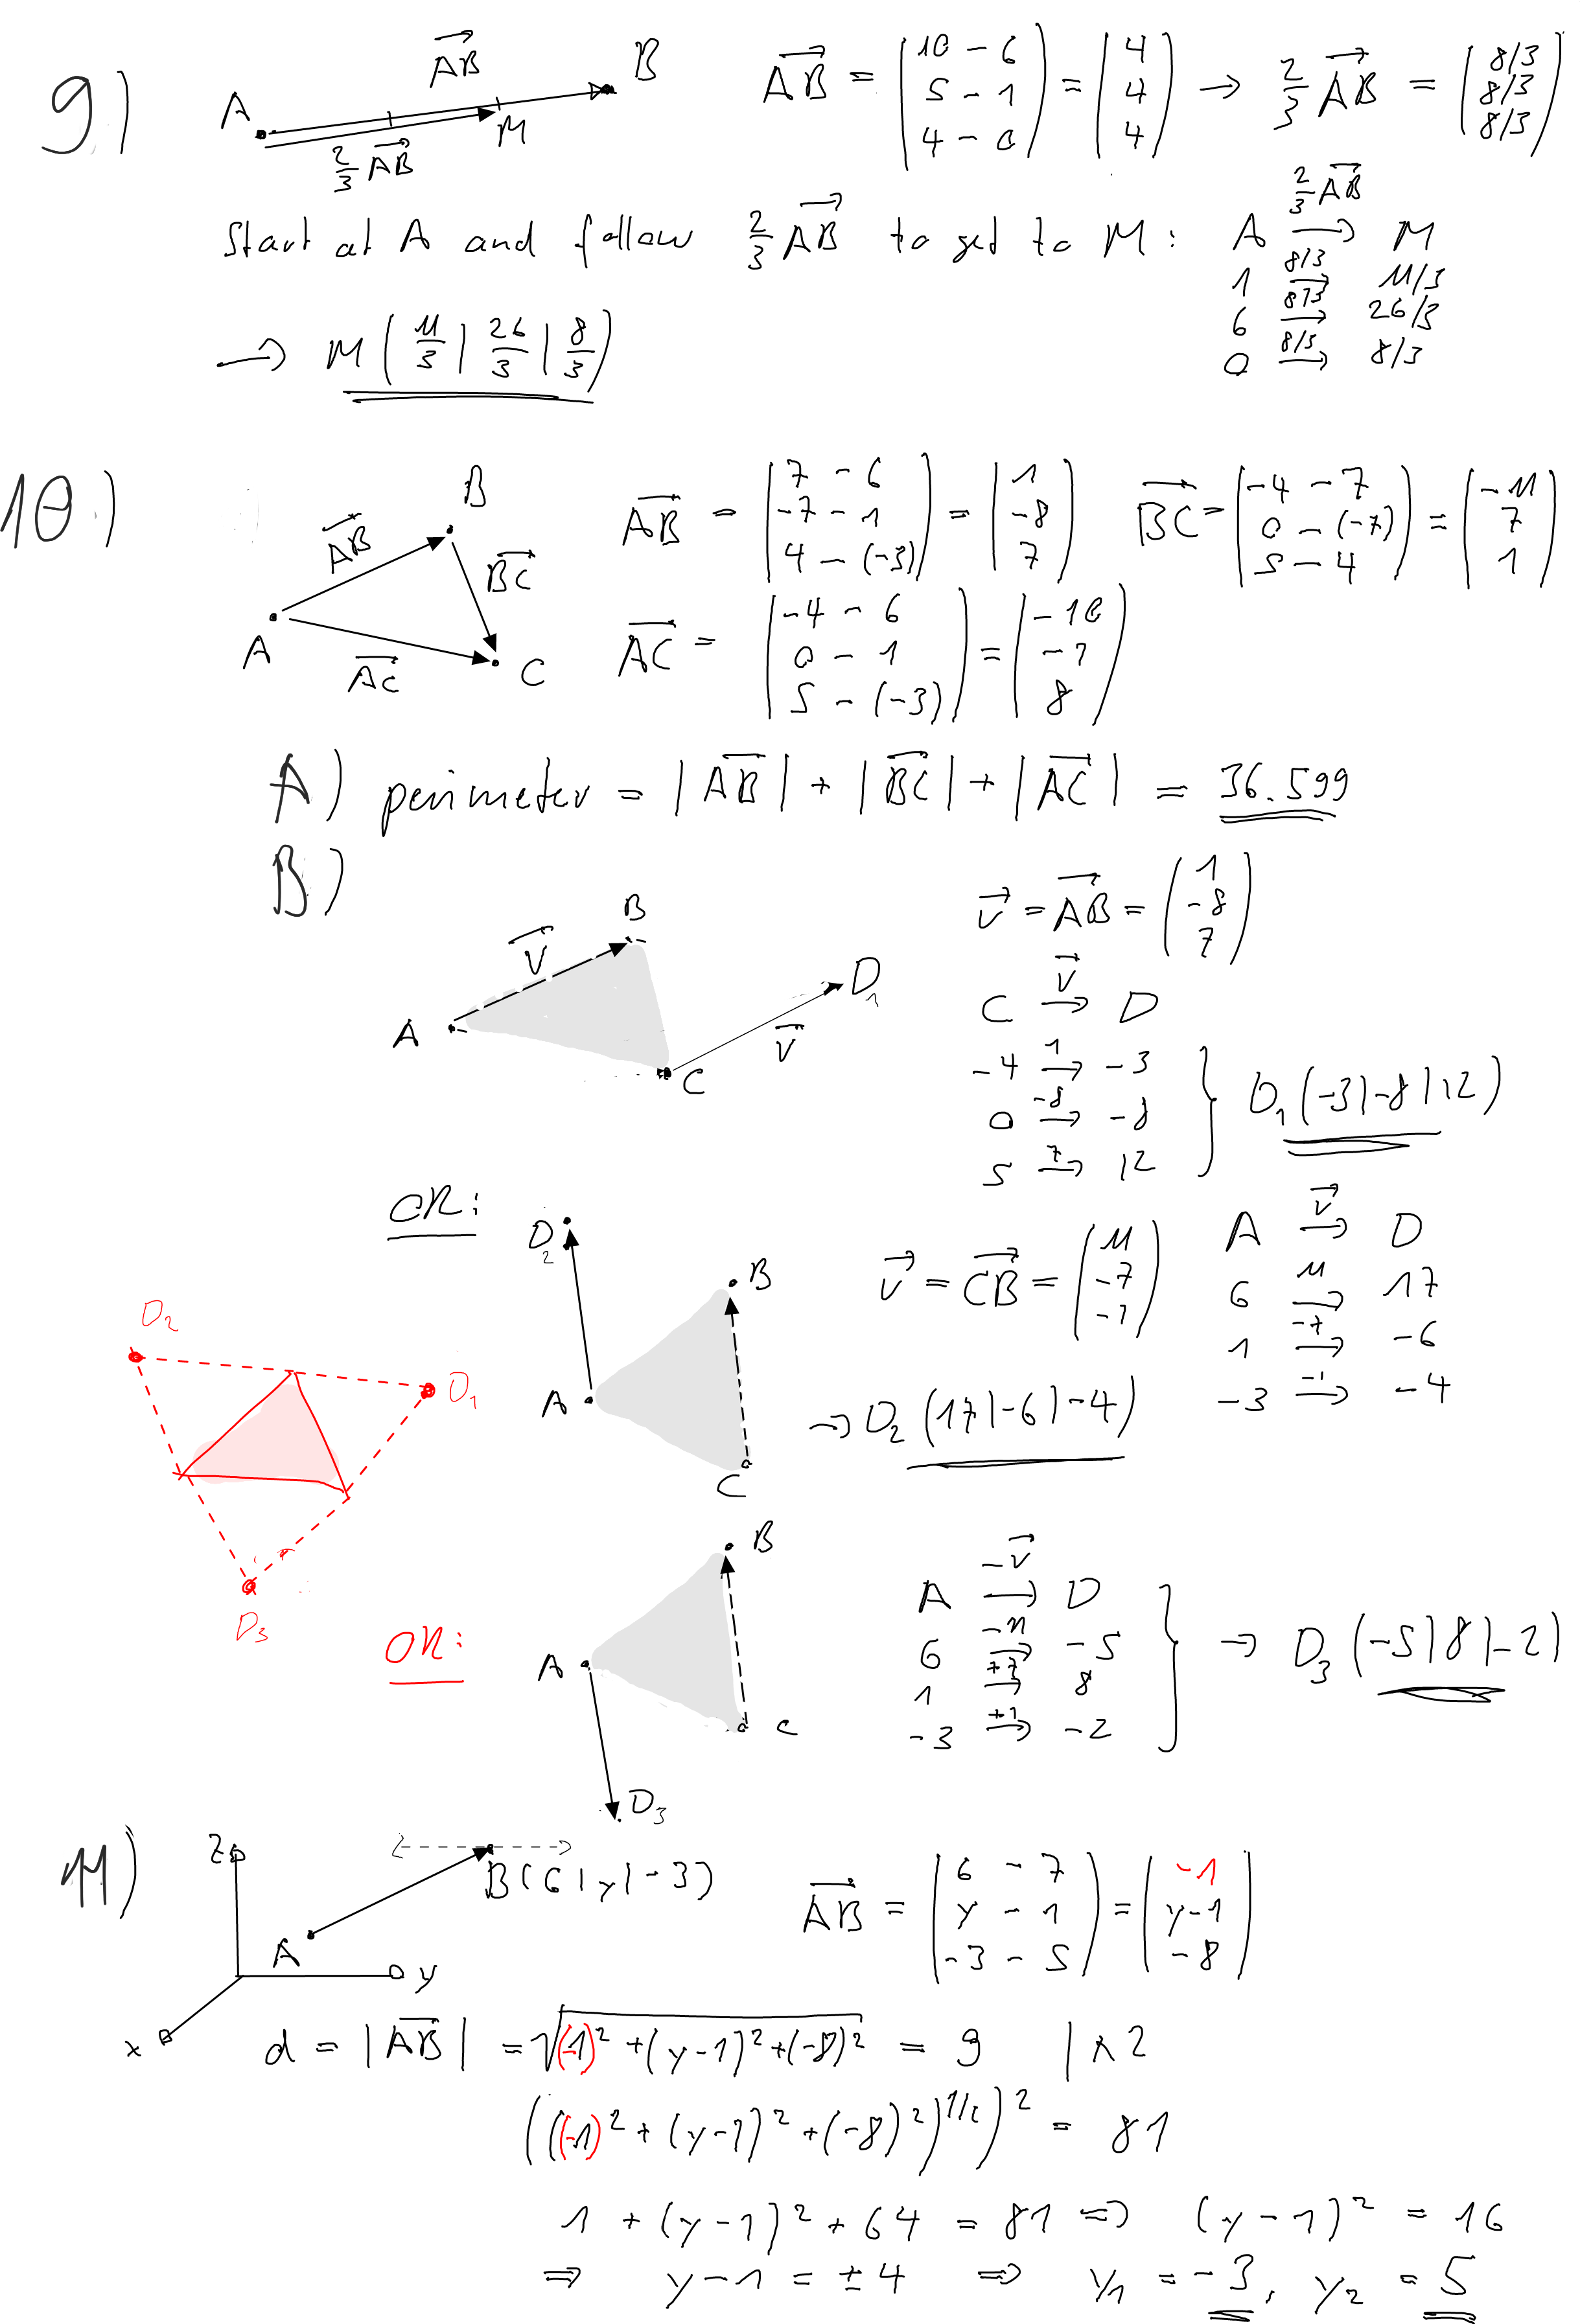 9.)
A
AB
B
M
2/3 AB
AB = (10 - 6, 5 - 1, 4 - 0) = (4, 4, 4) → 2/3 AB = (8/3, 8/3, 8/3)
Start at A and follow 2/3 AB to get to M :
A 2/3 AB → M
1 8/3 → 11/3
6 8/3 → 26/3
0 8/3 → 8/3
→ M ( 11/3 | 26/3 | 8/3 )
10.)
A
AB
B
BC
AC
C
AB = (7 - 6, -7 - 1, 4 - (-3)) = (1, -8, 7)
BC = (-4 - 7, 0 - (-7), 5 - 4) = (-11, 7, 1)
AC = (-4 - 6, 0 - 1, 5 - (-3)) = (-10, -1, 8)
A) perimeter = |AB| + |BC| + |AC| = 36.599
B)
A
v
B
C
v
D1
v = AB = (1, -8, 7)
C v → D
-4 1 → -3
0 -8 → -8
5 7 → 12
} D1 (-3|-8|12)
OR:
D2
A
B
C
v = CB = (11, -7, -1)
A v → D
6 11 → 17
1 -7 → -6
-3 -1 → -4
→ D2 (17|-6|-4)
D2
D1
D3
OR:
A
B
C
D3
A -v → D
6 -11 → -5
1 +7 → 8
-3 +1 → -2
} → D3 (-5|8|-2)
11)
z
y
x
A
B(6|y|-3)
AB = (6 - 7, y - 1, -3 - 5) = (-1, y-1, -8)
d = |AB| = √((-1)² + (y-1)² + (-8)²) = 9 | ^2
(((-1)² + (y-1)² + (-8)²)^1/2)² = 81
1 + (y-1)² + 64 = 81 ⇒ (y-1)² = 16
⇒ y-1 = ±4 ⇒ y1 = -3, y2 = 5